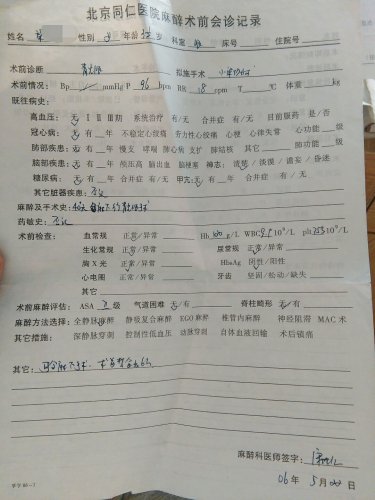 北京同仁医院麻醉术前会诊记录
姓名 性别 年龄 科室 眼 床号 住院号
术前诊断 青光眼 拟施手术
术前情况: Bp / mmHg P 96 bpm RR 18 rpm T ℃ 体重 kg
既往病史:
高血压: 无 Ⅰ Ⅱ Ⅲ期 系统治疗 有/无 合并症 有/无 目前服药 是/否
冠心病: 无 有 年 不稳定心绞痛 劳力性心绞痛 心梗 心律失常 心功能 级
肺部疾患: 无 有 年 慢支 哮喘 肺心病 支扩 肺结核 其它 肺功能 级
脑部疾患: 无 有 年 颅压高 脑出血 脑梗塞 神志: 清楚 / 淡漠 / 谵妄 / 昏迷
糖尿病: 无 有 年 合并症 有 / 无 甲亢: 无 有 年 合并症 有 / 无
其它脏器疾患: 否认
麻醉及手术史:
药敏史: 否认
术前检查: 血常规 正常/异常 Hb g/L WBC 10⁹/L plt 10⁹/L
生化常规 正常/异常 尿常规 正常/异常
胸X光 正常/异常 HbsAg 阴性/阳性
心电图 正常/异常 牙齿 坚固/松动/缺失
术前麻醉评估: ASA 级 气道困难 无/有 脊柱畸形 无/有
麻醉方法选择: 全静脉麻醉 静吸复合麻醉 EGO麻醉 椎管内麻醉 神经阻滞 MAC术
其它措施: 深静脉穿刺 控制性低血压 动脉穿刺 自体血液回输 术后镇痛
其它:
麻醉科医师签字:
06 年 5 月 日